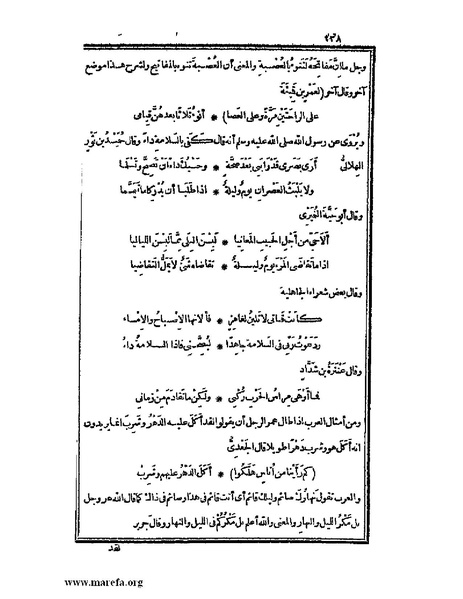 ٢٣٨
وجل ما إن مفاتحه لتنوء بالعصبة والمعنى أن العصبة تنوء بالمفاتيح ولشرح هذا موضع
آخر وقال آخر (لعمرو بن قميئة)
على الراحتين مرة وعلى العصا * أنوء ثلاثا بعدهن قيامى
ويروى عن رسول الله صلى الله عليه وسلم أنه قال كفى بالسلامة داء وقال حميد بن ثور
الهلالى أرى بصرى قد رابنى بعد صحة * وحسبك داء أن تصح وتسلما
ولا يلبث العصران يوم وليلة * اذا طلبا أن يدركا ما تيمما
وقال أبو حية النميرى
ألا حى من أجل الحبيب المغانيا * لبسن البلى مما لبسن اللياليا
اذا ما تقاضى المرء يوم وليلة * تقاضاه شئ لا يمل التقاضيا
وقال بعض شعراء الجاهلية
كانت قناتى لا تلين لغامز * فألانها الاصباح والامساء
ودعوت ربى فى السلامة جاهدا * ليصحنى فاذا السلامة داء
وقال عنترة بن شداد
فما أوهى مراس الحرب ركنى * ولكن ما تقادم من زمانى
ومن أمثال العرب اذا طال عمر الرجل أن يقولوا لقد أكل عليه الدهر وشرب انما يريدون
انه أكل هو وشرب دهرا طويلا قال الجعدى
(كم رأينا من أناس هلكوا) * أكل الدهر عليهم وشرب
والعرب تقول نهارك صائم وليلك قائم أى أنت قائم فى هذا وصائم فى ذاك كما قال الله عز وجل
بل مكر الليل والنهار والمعنى والله أعلم بل مكركم فى الليل والنهار وقال جرير
لقد
www.marefa.org